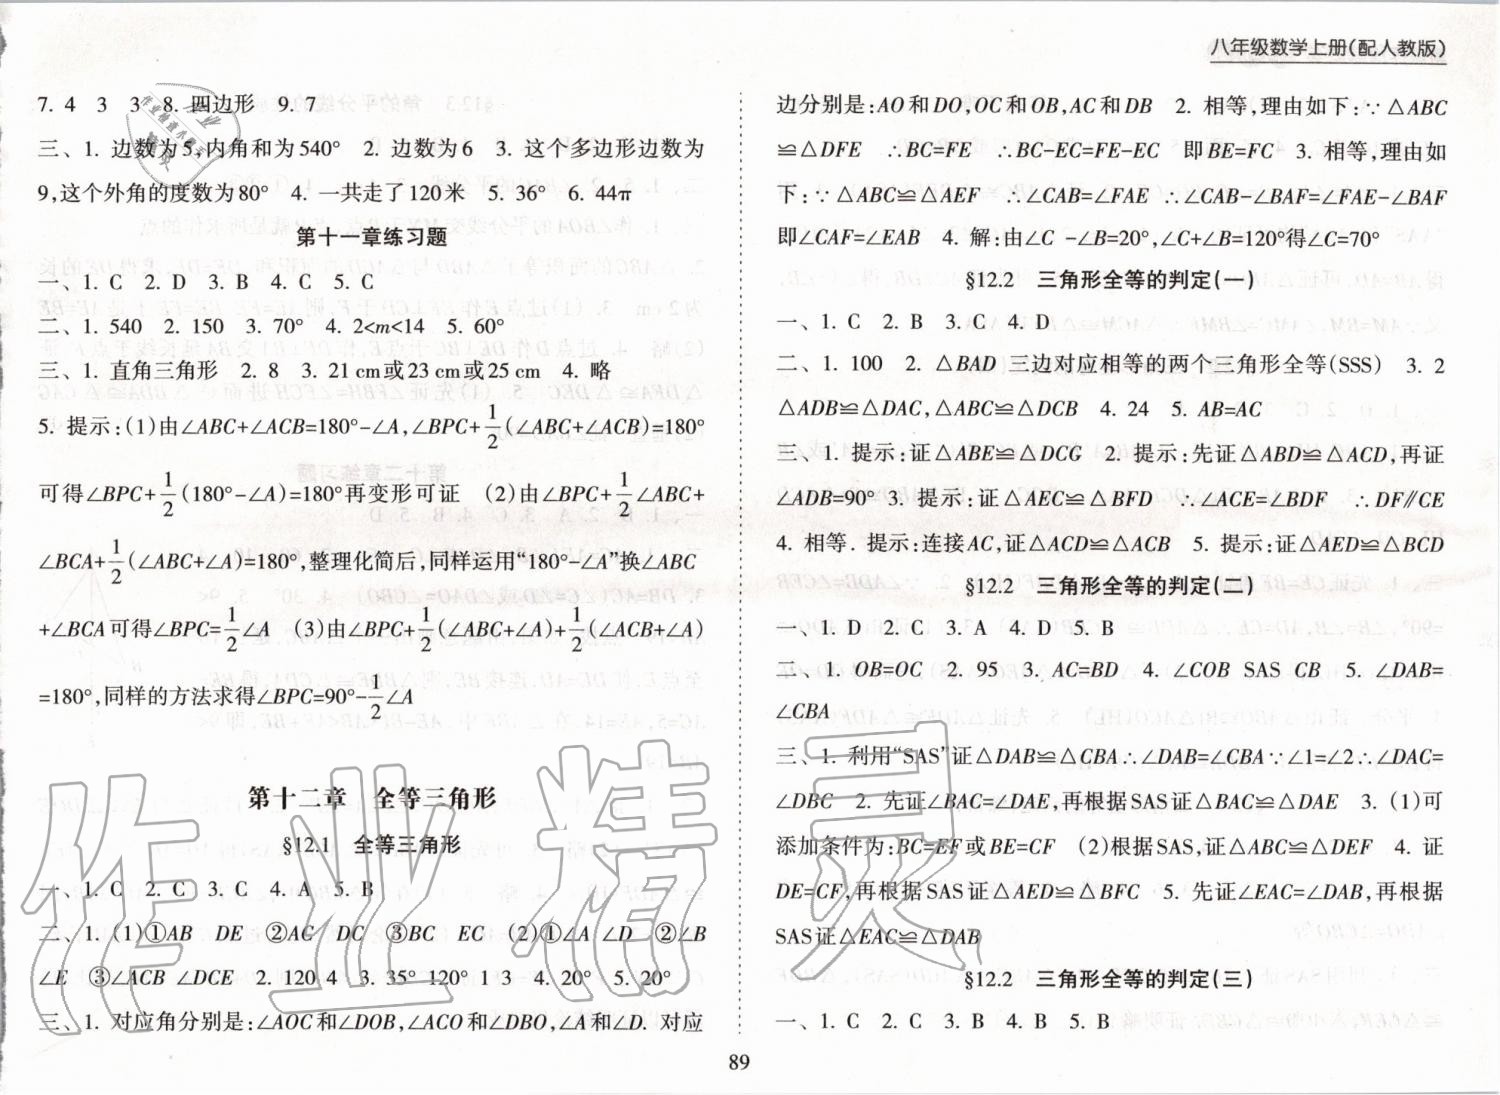 八年级数学上册(配人教版)
7. 4  3  3  8. 四边形  9. 7
三、1. 边数为5,内角和为540°  2. 边数为6  3. 这个多边形边数为
9,这个外角的度数为80°  4. 一共走了120米  5. 36°  6. 44π
第十一章练习题
一、1. C  2. D  3. B  4. C  5. C
二、1. 540  2. 150  3. 70°  4. 2<m<14  5. 60°
三、1. 直角三角形  2. 8  3. 21 cm或23 cm或25 cm  4. 略
5. 提示:(1)由∠ABC+∠ACB=180°-∠A,∠BPC+1/2(∠ABC+∠ACB)=180°
可得∠BPC+1/2(180°-∠A)=180°再变形可证  (2)由∠BPC+1/2∠ABC+
∠BCA+1/2(∠ABC+∠A)=180°,整理化简后,同样运用“180°-∠A”换∠ABC
+∠BCA可得∠BPC=1/2∠A  (3)由∠BPC+1/2(∠ABC+∠A)+1/2(∠ACB+∠A)
=180°,同样的方法求得∠BPC=90°-1/2∠A
第十二章  全等三角形
§12.1  全等三角形
一、1. C  2. C  3. C  4. A  5. B
二、1. (1)①AB  DE  ②AC  DC  ③BC  EC  (2)①∠A  ∠D  ②∠B
∠E  ③∠ACB  ∠DCE  2. 120  4  3. 35°  120°  1  3  4. 20°  5. 20°
三、1. 对应角分别是:∠AOC和∠DOB,∠ACO和∠DBO,∠A和∠D. 对应
边分别是:AO和DO,OC和OB,AC和DB  2. 相等,理由如下:∵△ABC
≌△DFE  ∴BC=FE  ∴BC-EC=FE-EC  即BE=FC  3. 相等,理由如
下:∵△ABC≌△AEF  ∴∠CAB=∠FAE  ∴∠CAB-∠BAF=∠FAE-∠BAF
即∠CAF=∠EAB  4. 解:由∠C -∠B=20°,∠C+∠B=120°得∠C=70°
§12.2  三角形全等的判定(一)
一、1. C  2. B  3. C  4. D
二、1. 100  2. △BAD  三边对应相等的两个三角形全等(SSS)  3. 2
△ADB≌△DAC,△ABC≌△DCB  4. 24  5. AB=AC
三、1. 提示:证△ABE≌△DCG  2. 提示:先证△ABD≌△ACD,再证
∠ADB=90°  3. 提示:证△AEC≌△BFD  ∴∠ACE=∠BDF  ∴DF∥CE
4. 相等. 提示:连接AC,证△ACD≌△ACB  5. 提示:证△AED≌△BCD
§12.2  三角形全等的判定(二)
一、1. D  2. C  3. A  4. D  5. B
二、1. OB=OC  2. 95  3. AC=BD  4. ∠COB  SAS  CB  5. ∠DAB=
∠CBA
三、1. 利用“SAS”证△DAB≌△CBA∴∠DAB=∠CBA∵∠1=∠2∴∠DAC=
∠DBC  2. 先证∠BAC=∠DAE,再根据SAS证△BAC≌△DAE  3. (1)可
添加条件为:BC=EF或BE=CF  (2)根据SAS,证△ABC≌△DEF  4. 证
DE=CF,再根据SAS证△AED≌△BFC  5. 先证∠EAC=∠DAB,再根据
SAS证△EAC≌△DAB
§12.2  三角形全等的判定(三)
一、1. C  2. C  3. B  4. B  5. B
89
作业精灵